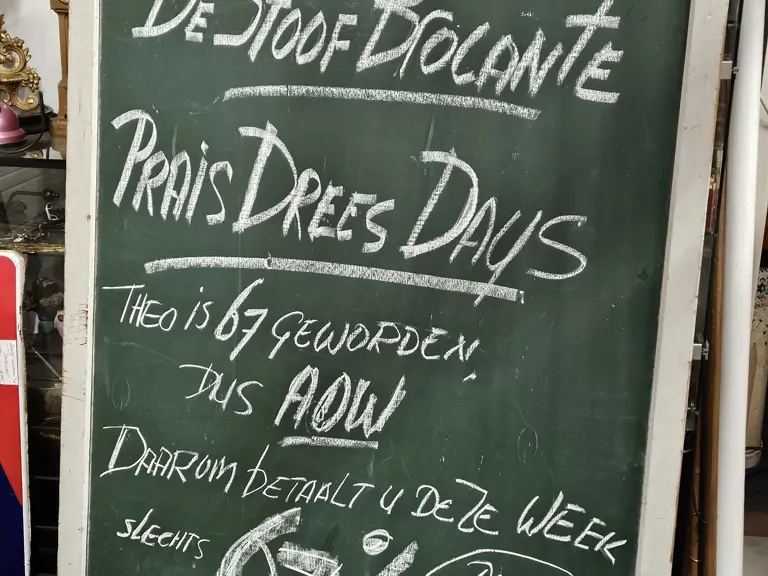 De Stoof Brocante
Prais Drees Days
Theo is 67 geworden,
dus AOW
Daarom betaalt u deze week
slechts 67%